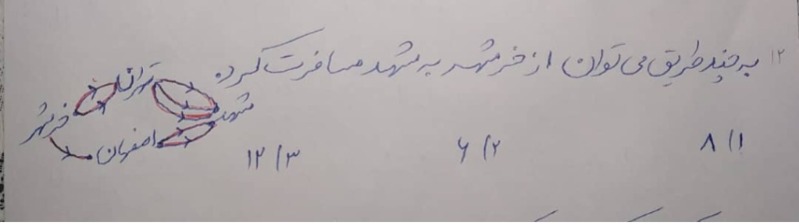 ۱۲ به چند طریق می توان از خرمشهر به مشهد مسافرت کرد.
تهران
مشهد
خرمشهر
اصفهان
۸ (۱ ۶ (۲ ۱۲ (۳